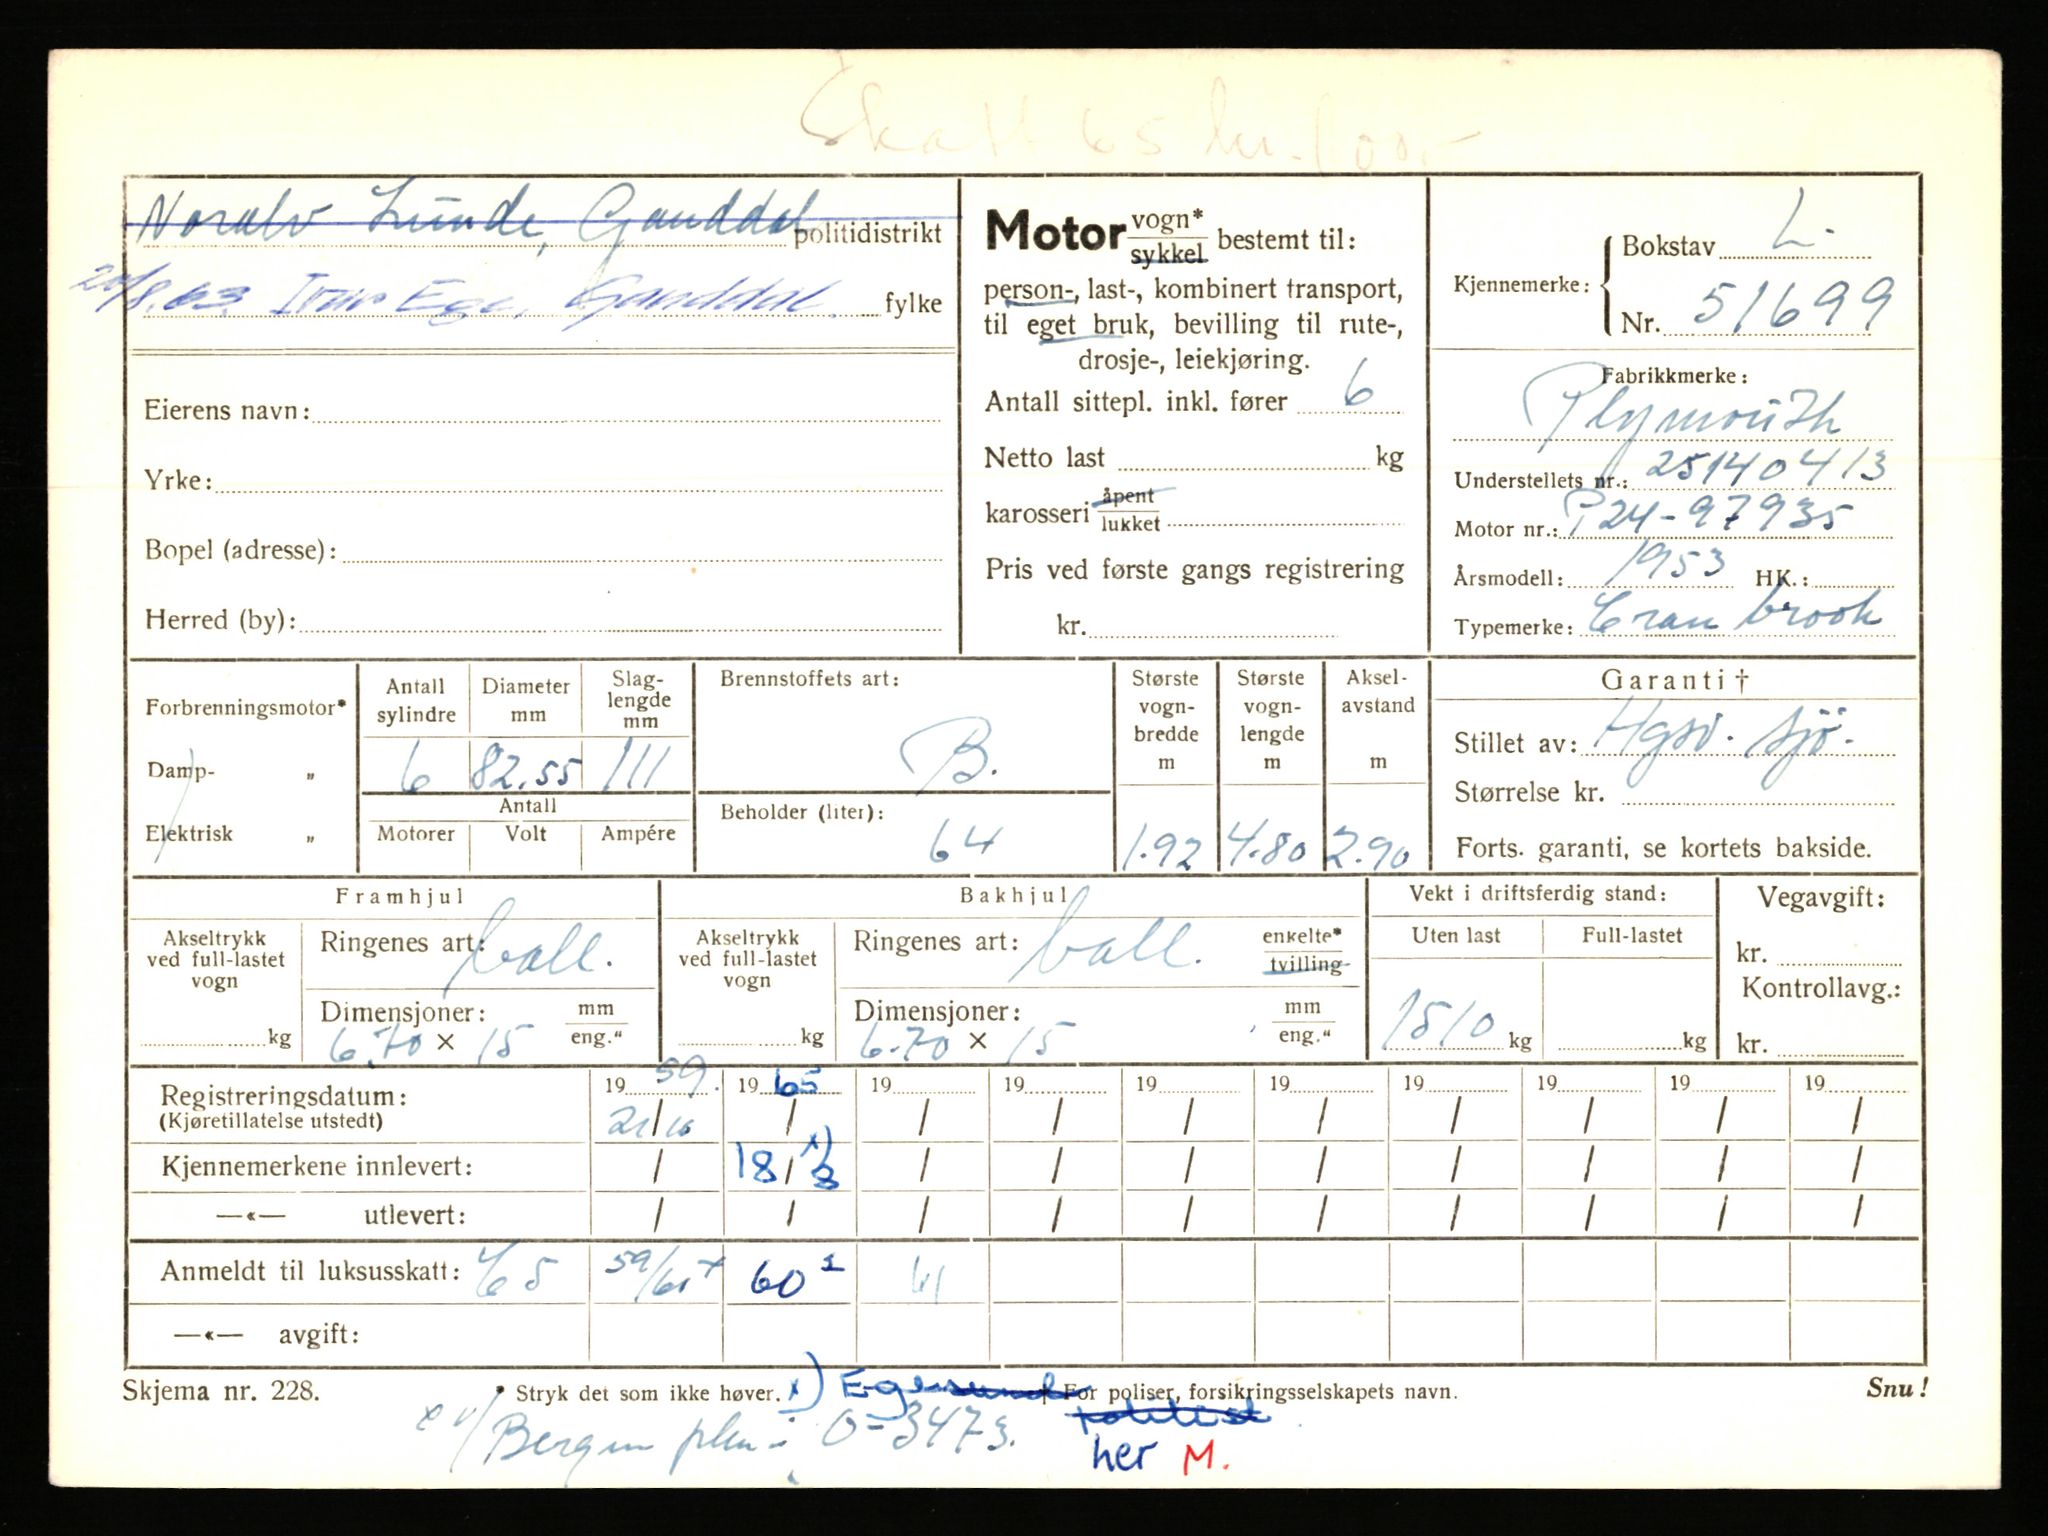 Skatt 65 kr. 100,-
Noralv Lunde, Ganddal politidistrikt
20/8.63. Ivar Ege, Ganddal. fylke
Eierens navn:
Yrke:
Bopel (adresse):
Herred (by):
Motor vogn* sykkel bestemt til:
person-, last-, kombinert transport,
til eget bruk, bevilling til rute-,
drosje-, leiekjøring.
Antall sittepl. inkl. fører 6
Netto last kg
karosseri åpent lukket
Pris ved første gangs registrering
kr.
Kjennemerke: Bokstav L.
Nr. 51699
Fabrikkmerke:
Plymouth
Understellets nr.: 25140413
Motor nr.: P24-97935
Årsmodell: 1953 HK.:
Typemerke: Cranbrook
Forbrenningsmotor*
Damp- „
Elektrisk „
Antall sylindre 6
Diameter mm 82.55
Slaglengde mm 111
Antall
Motorer Volt Ampére
Brennstoffets art:
B.
Beholder (liter):
64
Største vognbredde m 1.92
Største vognlengde m 4.80
Akselavstand m 2.90
Garanti †
Stillet av: Hgsv. sjö.
Størrelse kr.
Forts. garanti, se kortets bakside.
Framhjul
Akseltrykk ved full-lastet vogn kg
Ringenes art: ball.
Dimensjoner: mm eng."
6.70 × 15
Bakhjul
Akseltrykk ved full-lastet vogn kg
Ringenes art: ball. enkelte* tvilling
Dimensjoner: mm eng."
6.70 × 15
Vekt i driftsferdig stand:
Uten last Full-lastet
1510 kg kg
Vegavgift:
kr.
Kontrollavg.:
kr.
Registreringsdatum: 1959. 1965 19 19 19 19 19 19 19 19
(Kjøretillatelse utstedt) 21/10 / / / / / / / / /
Kjennemerkene innlevert: / 18/8 x) / / / / / / / /
—«— utlevert: / / / / / / / / / /
Anmeldt til luksusskatt: 65 59/60 x 60 1 61
—«— avgift:
Skjema nr. 228. * Stryk det som ikke høver. x) Egersund † For poliser, forsikringsselskapets navn. Snu!
politist
Bergen O-3473. her M.